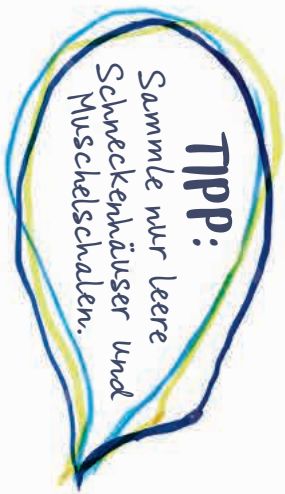 TIPP:
Sammle nur leere
Schneckenhäuser und
Muschelschalen.